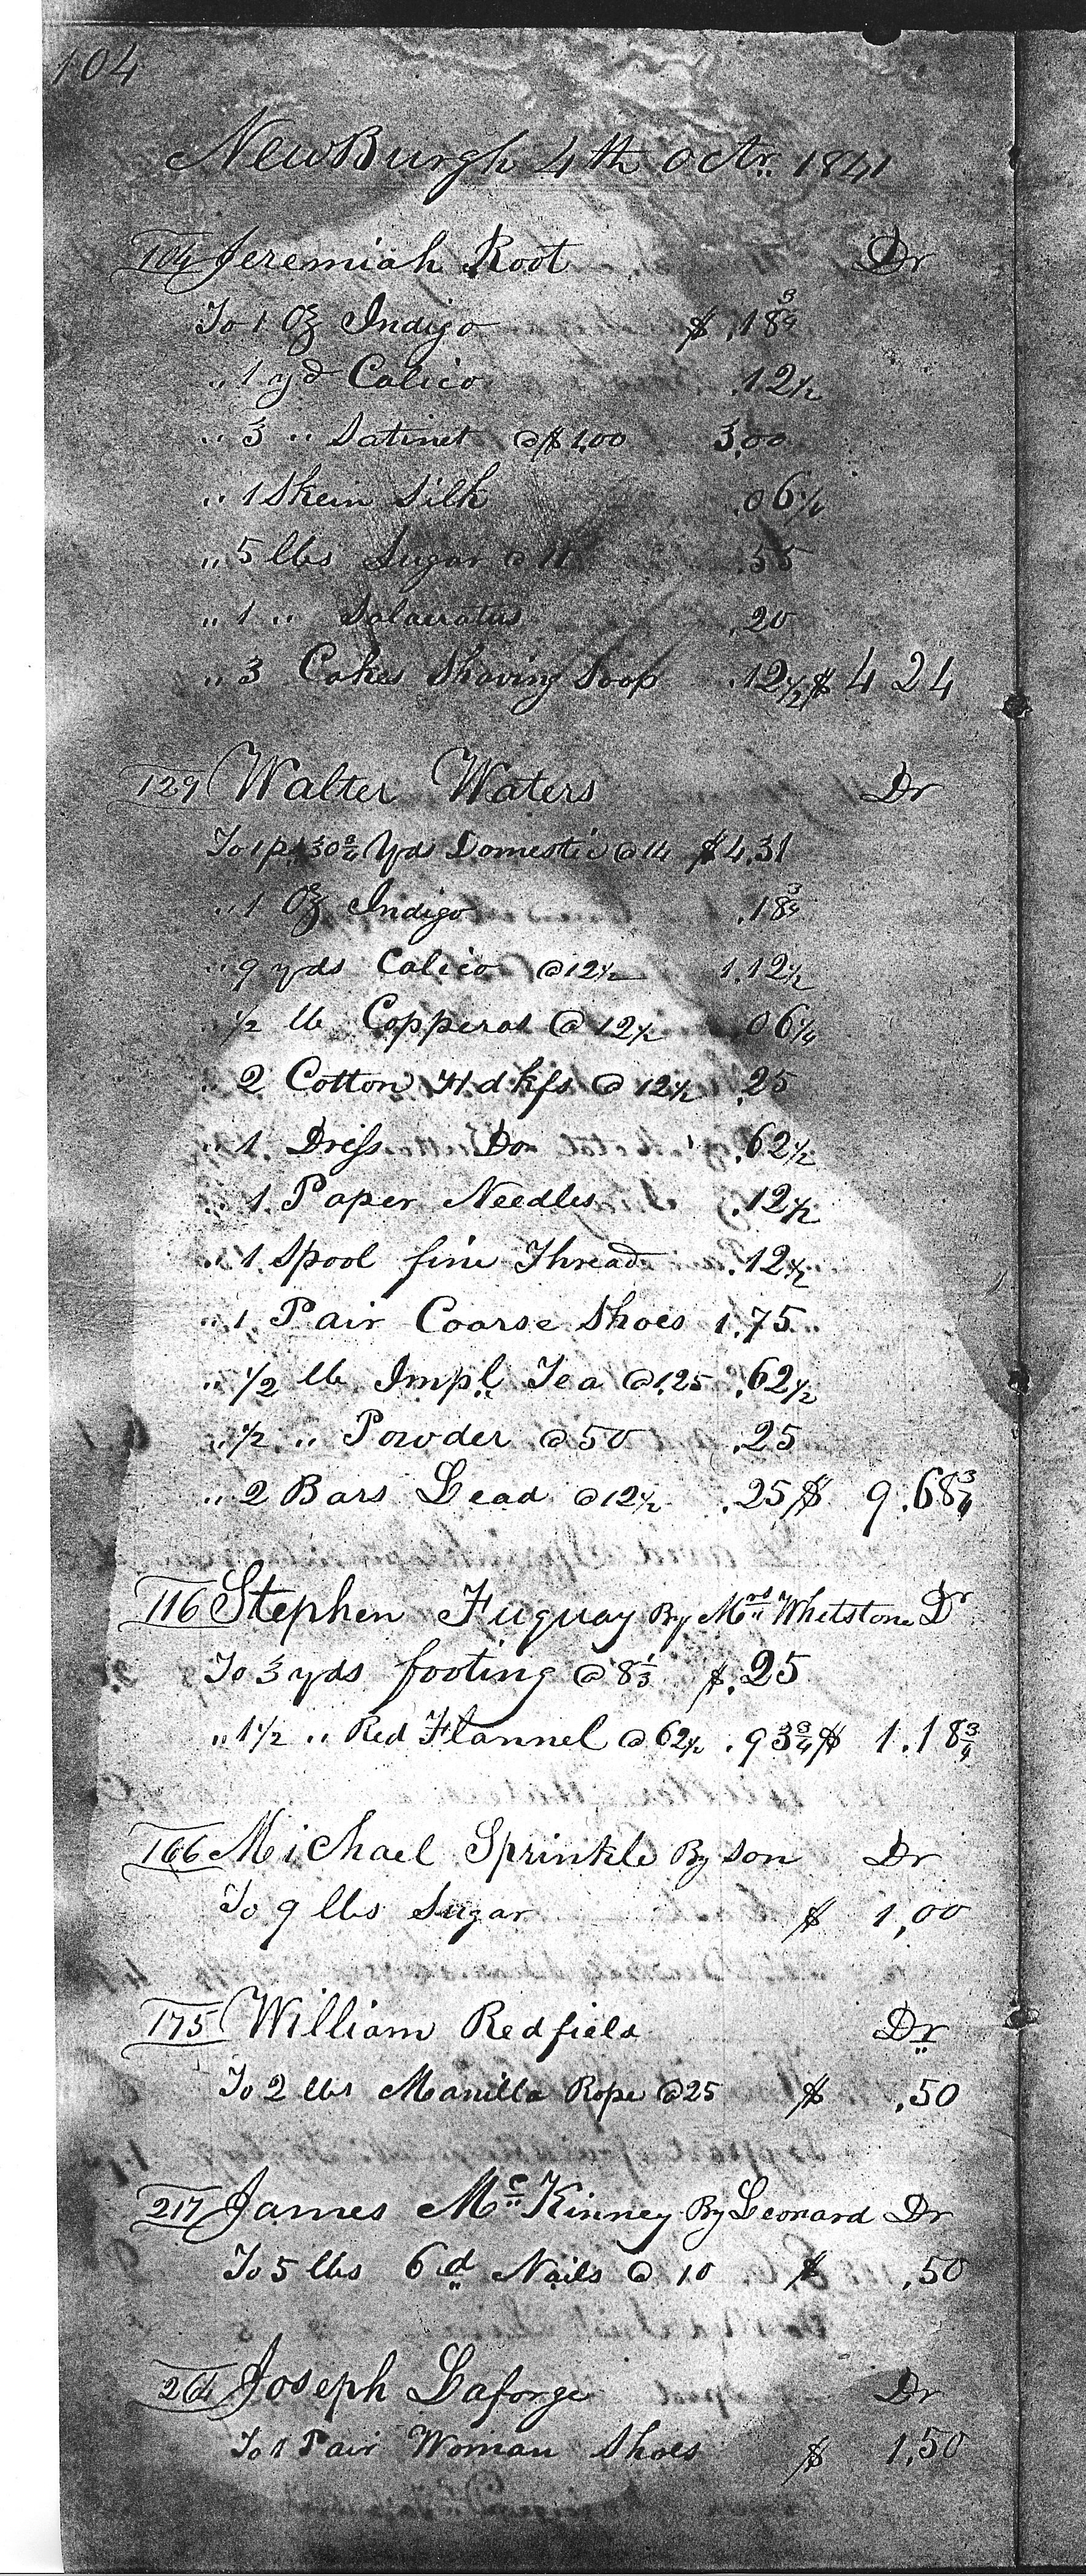 104
NewBurgh 4th Octr. 1841
104 Jeremiah Root Dr
To 1 Oz Indigo $ .18¾
„ 1 yd Calico .12½
„ 3 „ Satinet @ $1,00 3,00
„ 1 Skein Silk .06¼
„ 5 lbs Sugar @ 11 .55
„ 1 „ Salaeratus .20
„ 3 Cakes Shaving Soap .12½ $ 4 24
129 Walter Waters Dr
To 1 p. 30¾ Yds Domestic @ 14 $4.31
„ 1 Oz Indigo .18¾
„ 9 yds Calico @ 12½ 1.12½
„ ½ lb Copperas @ 12½ .06¼
„ 2 Cotton Hdkfs @ 12½ .25
„ 1 Dress Do .62½
„ 1 Paper Needles .12½
„ 1 Spool fine Thread .12½
„ 1 Pair Coarse Shoes 1.75
„ ½ lb Impl. Tea @ 1.25 .62½
„ ½ „ Powder @ 50 .25
„ 2 Bars Lead @ 12½ .25 $ 9.68¾
116 Stephen Fuquay By Mrs Whetstone Dr
To 3 yds footing @ 8⅓ $.25
„ 1½ „ Red Flannel @ 62½ .93¾ $ 1.18¾
166 Michael Sprinkle By Son Dr
To 9 lbs Sugar $ 1,00
175 William Redfield Dr
To 2 lbs Manilla Rope @ 25 $ .50
217 James Mc Kinney By Leonard Dr
To 5 lbs 6d Nails @ 10 $ .50
264 Joseph Laforge Dr
To 1 Pair Woman Shoes $ 1.50